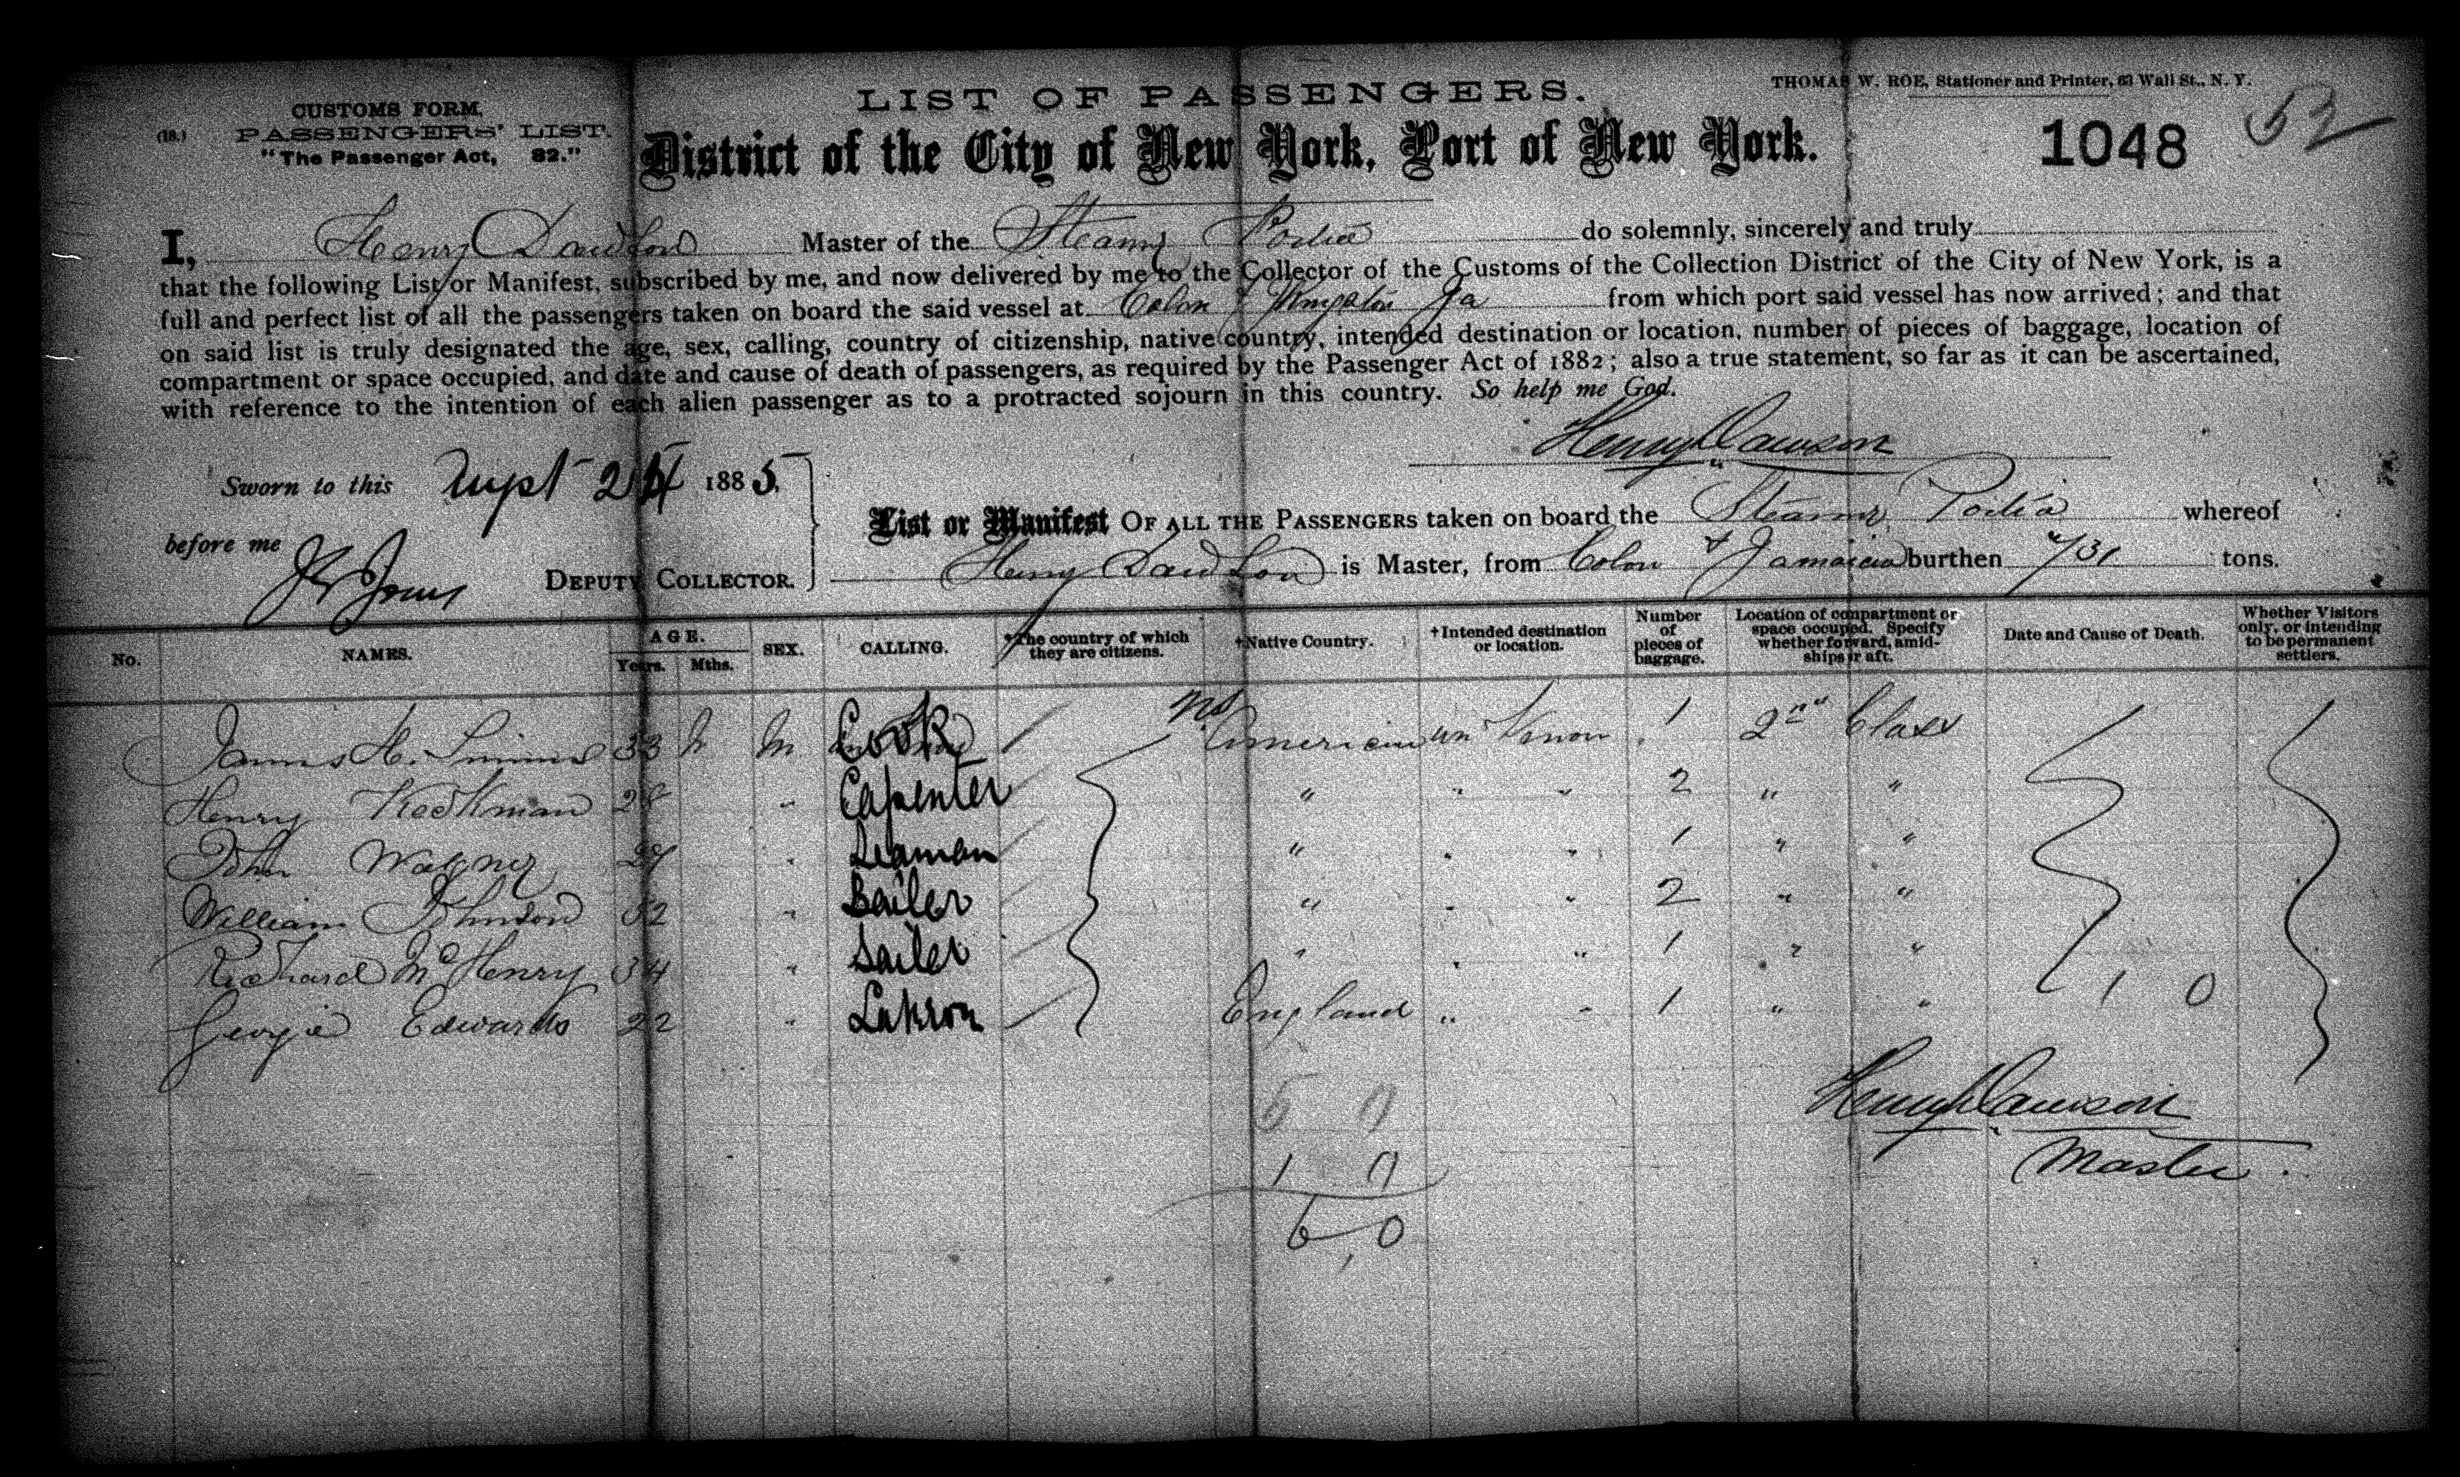 CUSTOMS FORM,
(18.) PASSENGERS' LIST.
"The Passenger Act, 82."
LIST OF PASSENGERS.
THOMAS W. ROE, Stationer and Printer, 63 Wall St., N. Y.
District of the City of New York, Port of New York.
1048
52
I, Henry Dawson Master of the Steamr Portia do solemnly, sincerely and truly
that the following List or Manifest, subscribed by me, and now delivered by me to the Collector of the Customs of the Collection District of the City of New York, is a
full and perfect list of all the passengers taken on board the said vessel at Colon & Kingston Ja from which port said vessel has now arrived; and that
on said list is truly designated the age, sex, calling, country of citizenship, native country, intended destination or location, number of pieces of baggage, location of
compartment or space occupied, and date and cause of death of passengers, as required by the Passenger Act of 1882; also a true statement, so far as it can be ascertained,
with reference to the intention of each alien passenger as to a protracted sojourn in this country. So help me God.
Henry Dawson
Sworn to this Sept 24 1885,
before me
DEPUTY COLLECTOR.
List or Manifest OF ALL THE PASSENGERS taken on board the Steamr Portia whereof
Henry Dawson is Master, from Colon & Jamaica burthen 731 tons.
No. NAMES. AGE. Years. Mths. SEX. CALLING. †The country of which they are citizens. †Native Country. †Intended destination or location. Number of pieces of baggage. Location of compartment or space occupied. Specify whether forward, amidships or aft. Date and Cause of Death. Whether Visitors only, or intending to be permanent settlers.
James H. Simms 33 M Cook American un Know 1 2nd Class
Henry 28 " Capenter " " " 2 " "
John Wagner 27 " Seaman " " " 1 " "
William Johnson 52 " Sailer " " " 2 " "
Richard McHenry 34 " Sailer " " " 1 " "
George Edwards 22 " England " " 1 " "
1 0
5 0
1 0
6 0
Henry Dawson
Master.